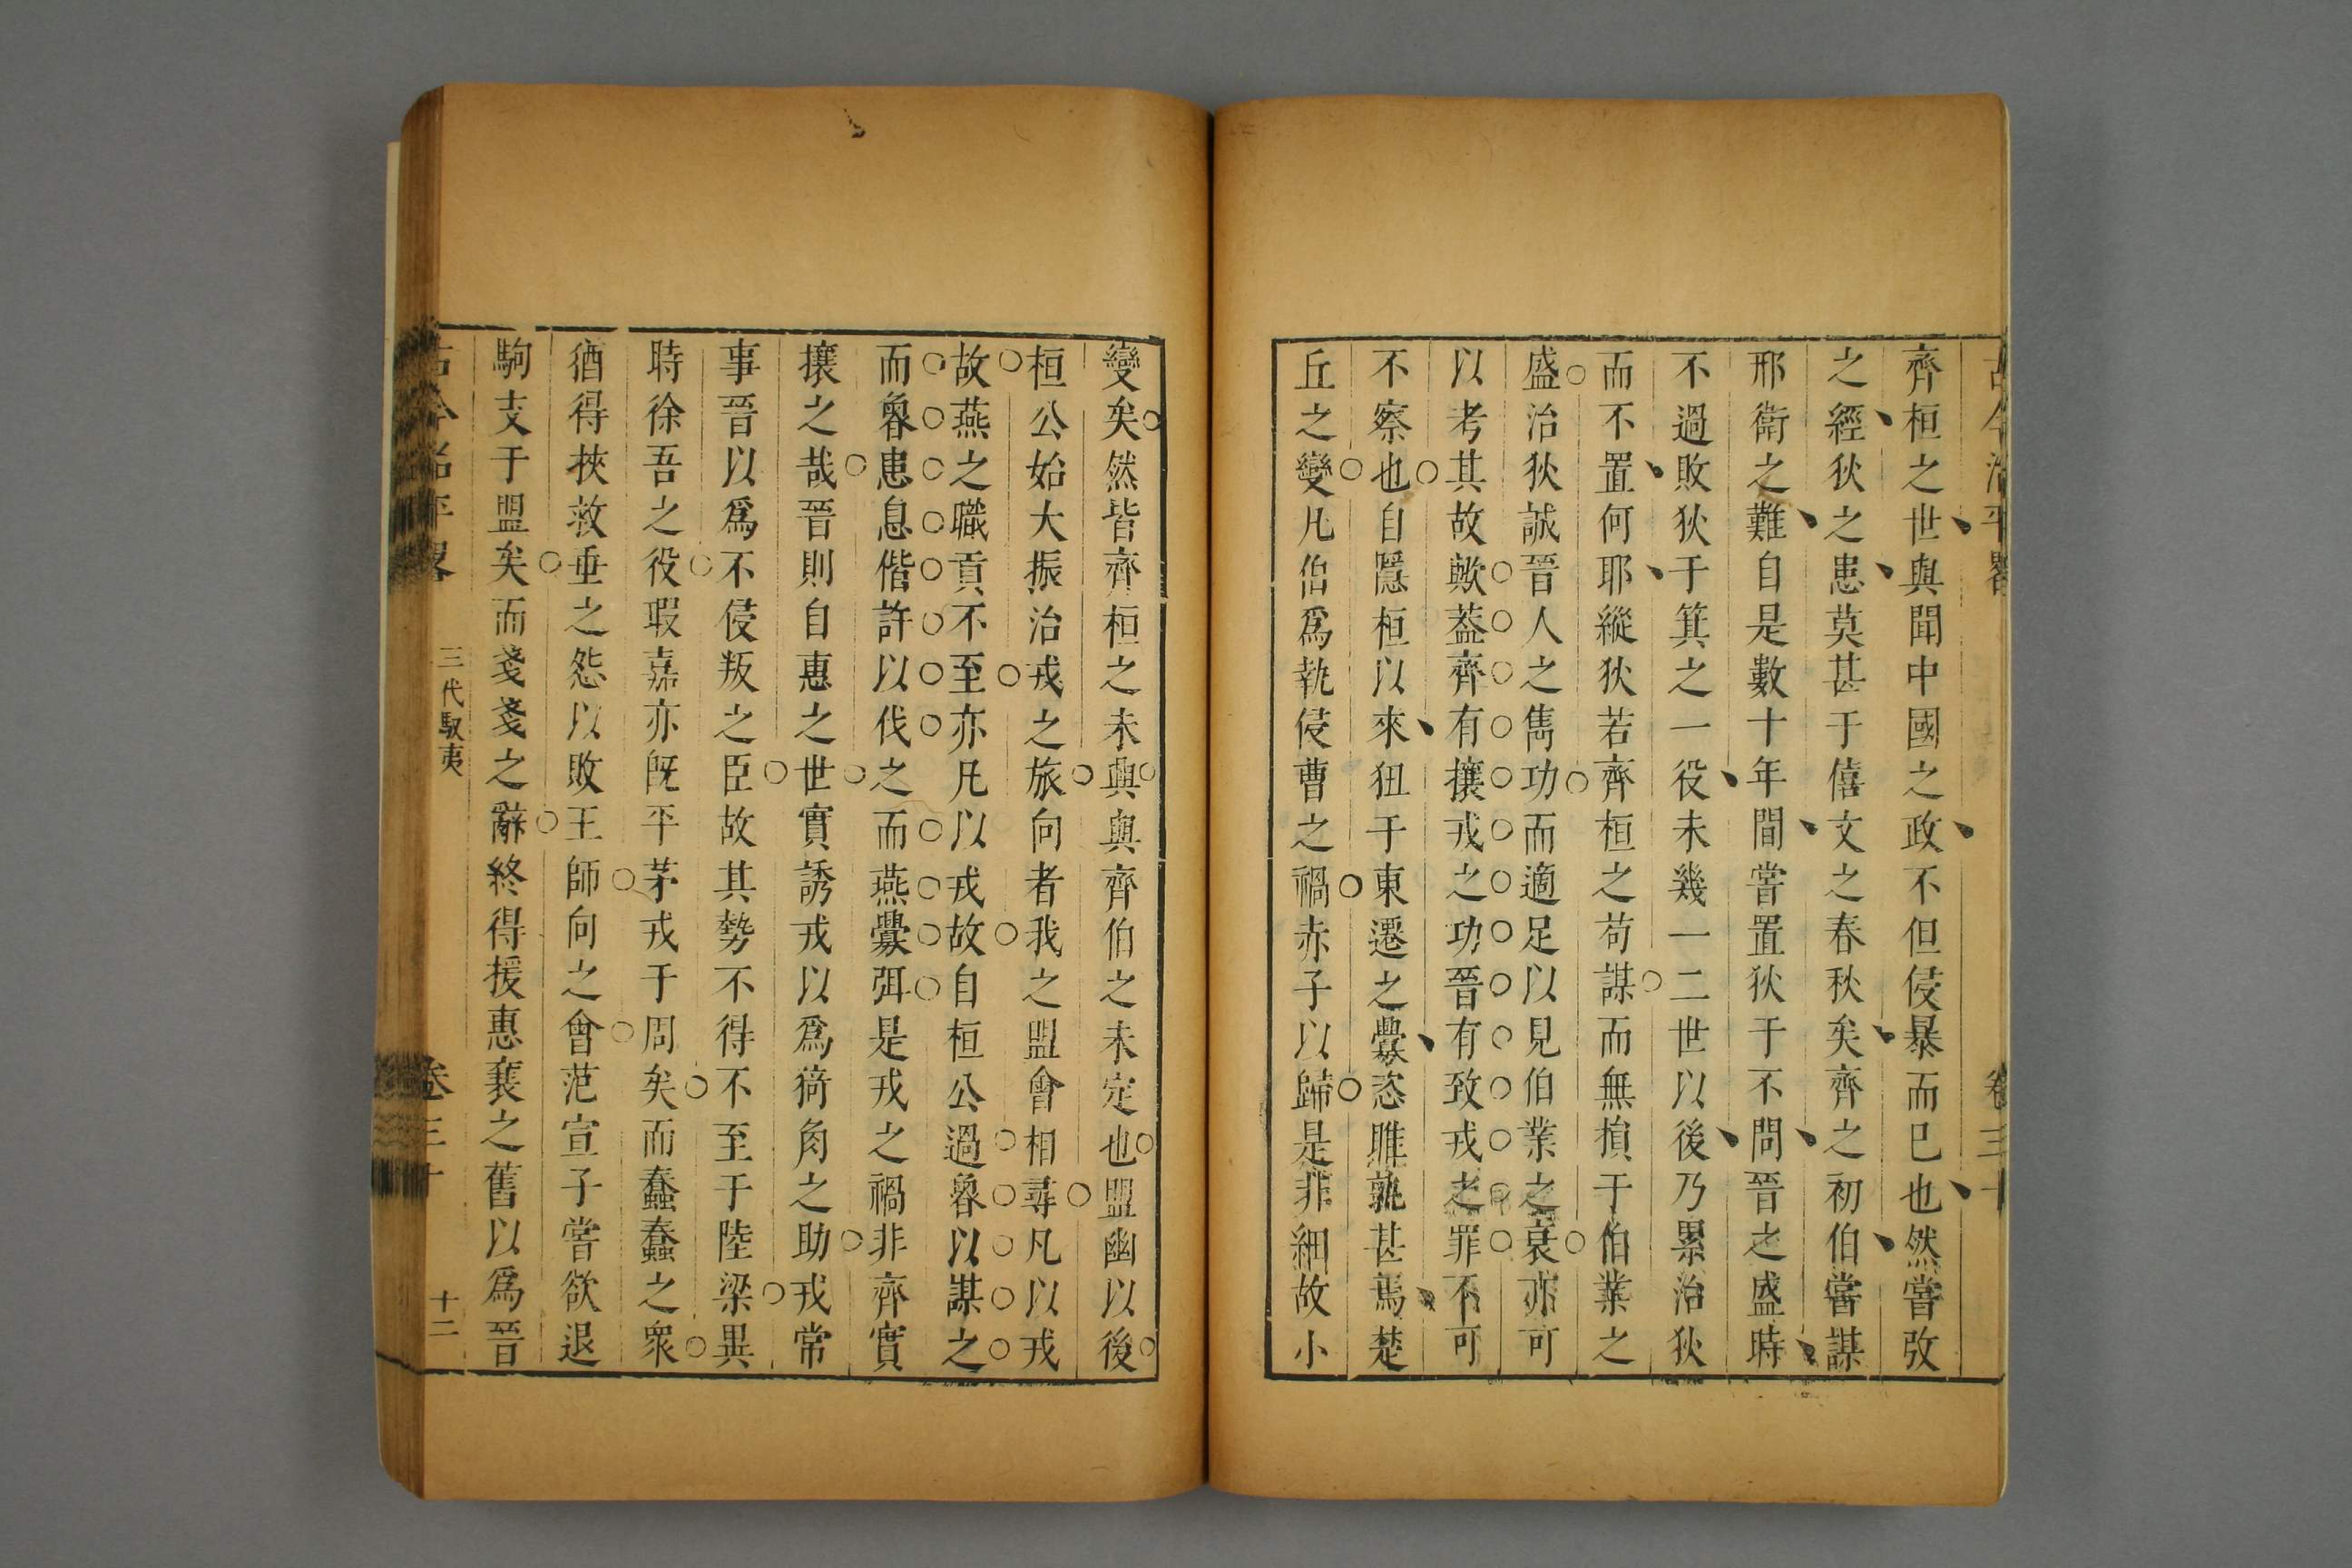 齊桓之世與聞中國之政不但侵暴而已也然嘗攷
之經狄之患莫甚于僖文之春秋矣齊之初伯嘗謀
邢衛之難自是數十年間嘗置狄于不問晉之盛時
不過敗狄于箕之一役未幾一二世以後乃累治狄
而不置何耶縱狄若齊桓之苟謀而無損于伯業之
盛治狄誠晉人之雋功而適足以見伯業之衰亦可
以考其故歟葢齊有攘戎之功晉有致戎之罪不可
不察也自隱桓以來狃于東遷之釁恣睢孰甚焉楚
丘之變凡伯爲執侵曹之禍赤子以歸是非細故小
變矣然皆齊桓之未興與齊伯之未定也盟幽以後
桓公始大振治戎之旅向者我之盟會相尋凡以戎
故燕之職貢不至亦凡以戎故自桓公過魯以謀之
而魯患息偕許以伐之而燕釁弭是戎之禍非齊實
攘之哉晉則自惠之世實誘戎以爲猗角之助戎常
事晉以爲不侵叛之臣故其勢不得不至于陸梁異
時徐吾之役瑕嘉亦旣平茅戎于周矣而蠢蠢之衆
猶得挾敖垂之怨以敗王師向之會范宣子嘗欲退
駒支于盟矣而戔戔之辭終得援惠襄之舊以爲晉
三代馭夷
卷三十
十二